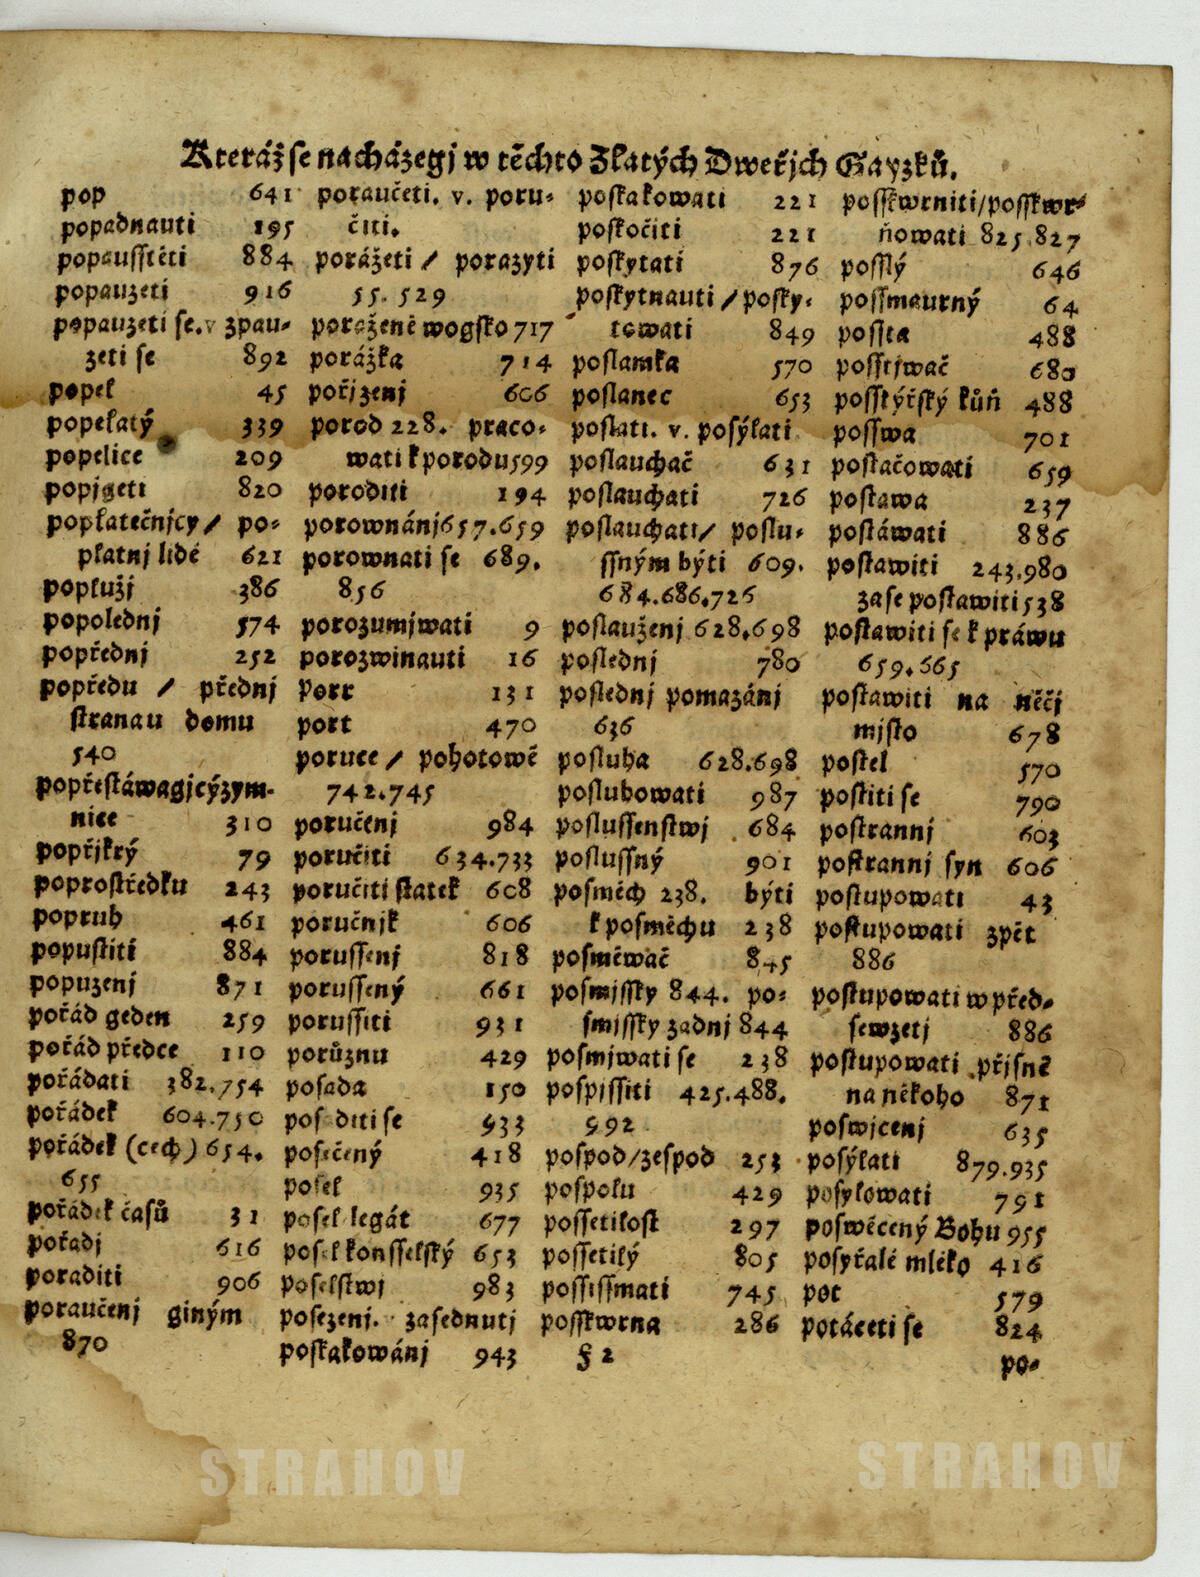 Kteráž se nacházegj w těchto Zlatých Dweřjch Gazyků.
pop 641
popadnauti 195
popausstěti 884
popauzeti 916
popauzeti se. v zpau-
zeti se 892
popel 45
popelatý 339
popelice 209
popjgeti 820
poplatečnjcy / po-
platnj lidé 621
poplužj 386
popolednj 574
popřednj 252
popředu / přednj
stranau domu
540
popřestáwagjcý zym-
nice 310
popřjkrý 79
poprostředku 243
popruh 461
popustiti 884
popuzenj 871
pořád geden 259
pořád předce 110
pořádati 382.754
pořádek 604.750
pořádek (cech) 654.
655
pořádek časů 31
pořadj 616
poraditi 906
poraučenj giným
870
poraučeti. v. poru-
čiti.
porážeti / porazyti
55. 529
poražené wogsko 717
porážka 714
pořjzenj 606
porod 228. praco-
wati k porodu 599
poroditi 194
porownánj 657.659
porownati se 689.
856
porozumjwati 9
porozwinauti 16
Porr 131
port 470
poruce / pohotowě
742.745
poručenj 984
poručiti 634.733
poručiti statek 608
poručnjk 606
porussenj 818
porussený 661
porussiti 931
porůznu 429
posada 150
pos diti se 933
posečený 418
posel 935
posel legát 677
posel konsselský 653
poselstwj 983
posezenj. zasednutj
poskakowánj 943
poskakowati 221
poskočiti 221
poskytati 876
poskytnauti / posky-
towati 849
poslamka 570
poslanec 653
poslati. v. posýlati
poslauchač 631
poslauchati 726
poslauchati / poslu-
ssným býti 609.
684.686.726
poslauženj 628.698
poslednj 780
poslednj pomazánj
636
posluha 628.698
poslubowati 987
poslussenstwj 684
poslussný 901
posměch 238. býti
k posměchu 238
posměwač 845
posmjssky 844. po-
smjssky zadnj 844
posmjwati se 238
pospjssiti 425.488.
992
pospod / zespod 253
pospolu 429
possetilost 297
possetilý 805
possissmati 745
posskwrna 286
§ 2
posskwrniti / posskwr-
ňowati 825.827
posslý 646
possmaurný 64
possta 488
posstjwač 680
posstýřský kůň 488
posswa 701
postačowati 659
postawa 237
postáwati 886
postawiti 243.980
zase postawiti 538
postawiti se k práwu
659.665
postawiti na něčj
mjsto 678
postel 570
postiti se 790
postrannj 603
postrannj syn 606
postupowati 43
postupowati zpět
886
postupowati w před-
sewzetj 886
postupowati přjsně
na někoho 871
poswjcenj 635
posýlati 879.935
posylowati 791
poswěcený Bohu 955
posyřalé mléko 416
pot 579
potáceti se 824
po-
STRAHOV
STRAHOV